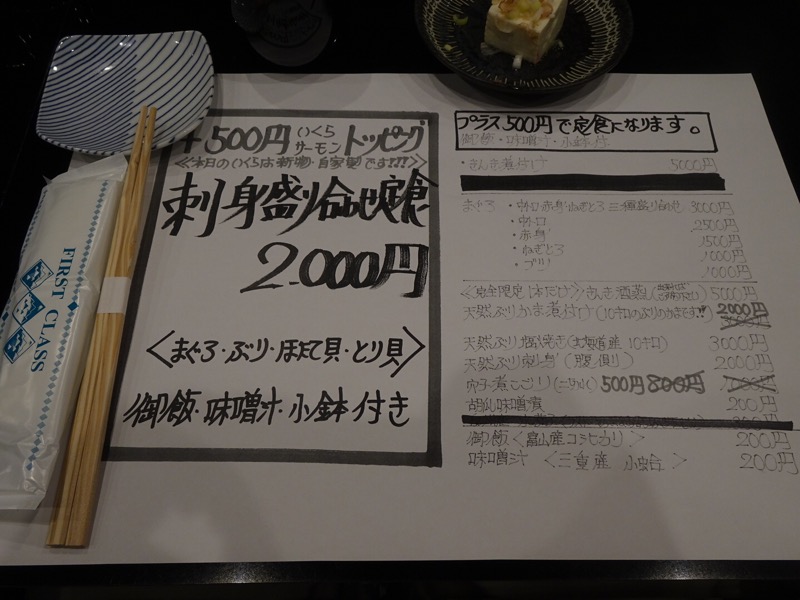 FIRST CLASS
+500円 いくら サーモン トッピング
≪本日のいくらは新物・自家製です!!!≫
刺身盛り合わせ定食
2.000円
〈まぐろ・ぶり・ほたて貝・とり貝〉
御飯・味噌汁・小鉢付き
プラス500円で定食になります。
御飯・味噌汁・小鉢付
・きんき煮付け 5000円
まぐろ ・中トロ・赤身・ねぎとろ三種盛り合わせ 3000円
・中トロ 2500円
・赤身 1500円
・ねぎとろ 1000円
・ブツ 1000円
≪完全限定1本だけ≫きんき酒蒸 5000円
天然ぶりかま煮付け(10キロのぶりのかまです!!) 2000円
天然ぶり塩焼き(北海道産10キロ) 3000円
天然ぶり刺身(腹側) 2000円
穴子煮こごり 500円 800円
胡瓜味噌漬 200円
御飯〈富山産コシヒカリ〉 200円
味噌汁 〈三重産 小蛤〉 200円